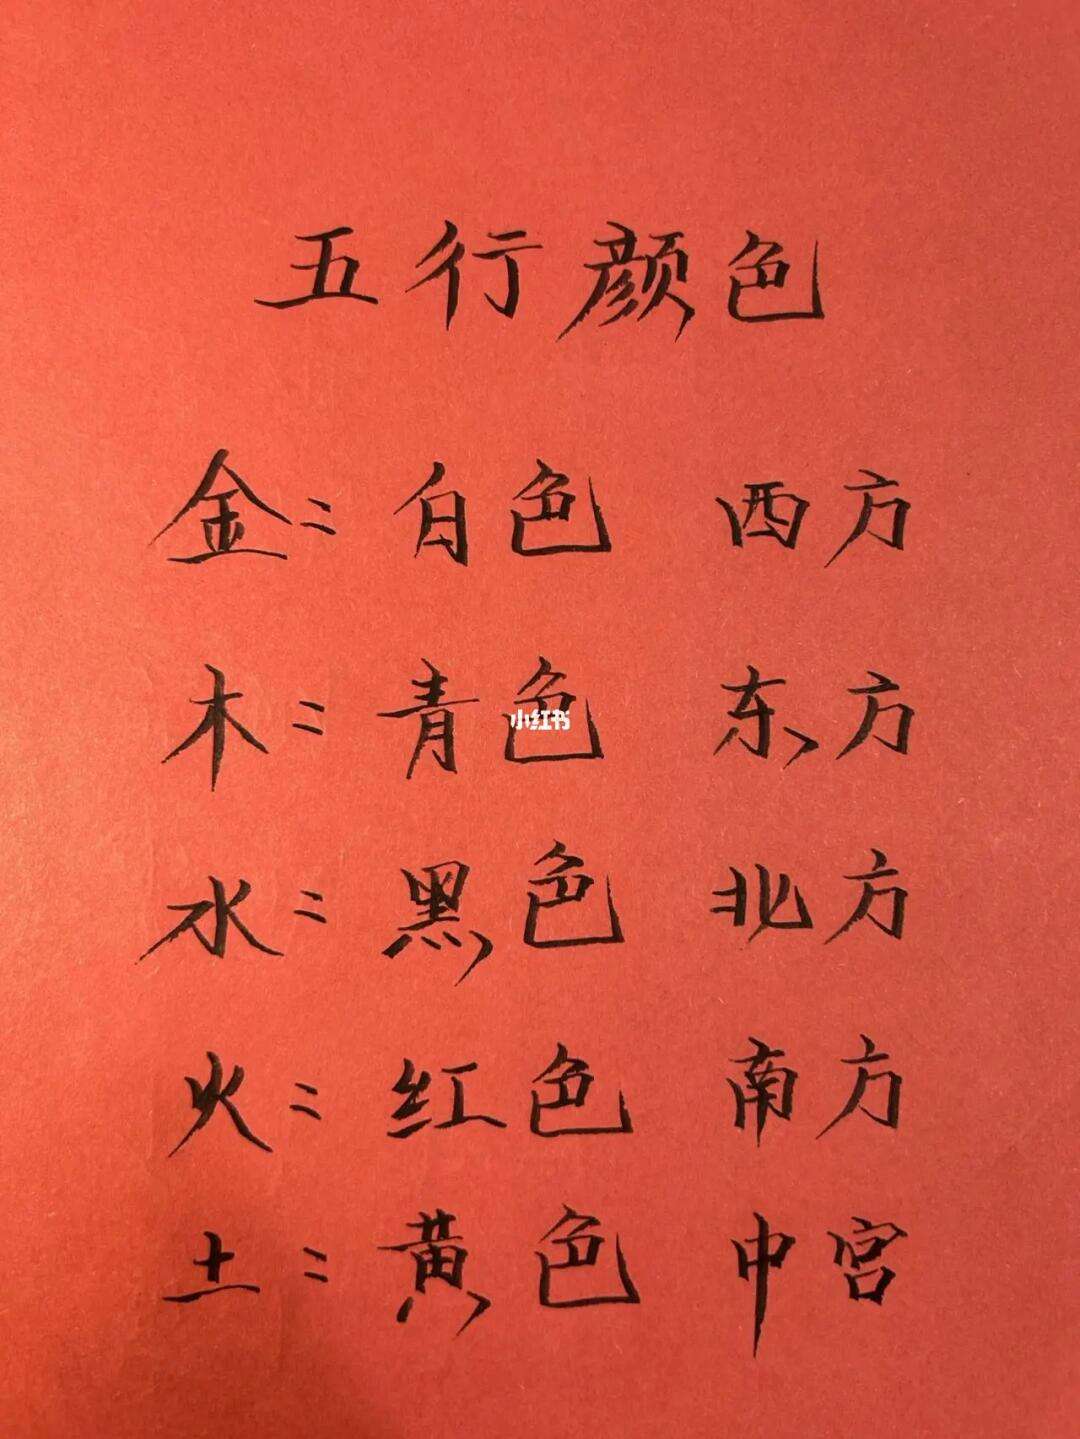 五行颜色
金: 白色 西方
木: 青色 东方
小红书
水: 黑色 北方
火: 红色 南方
土: 黄色 中宫